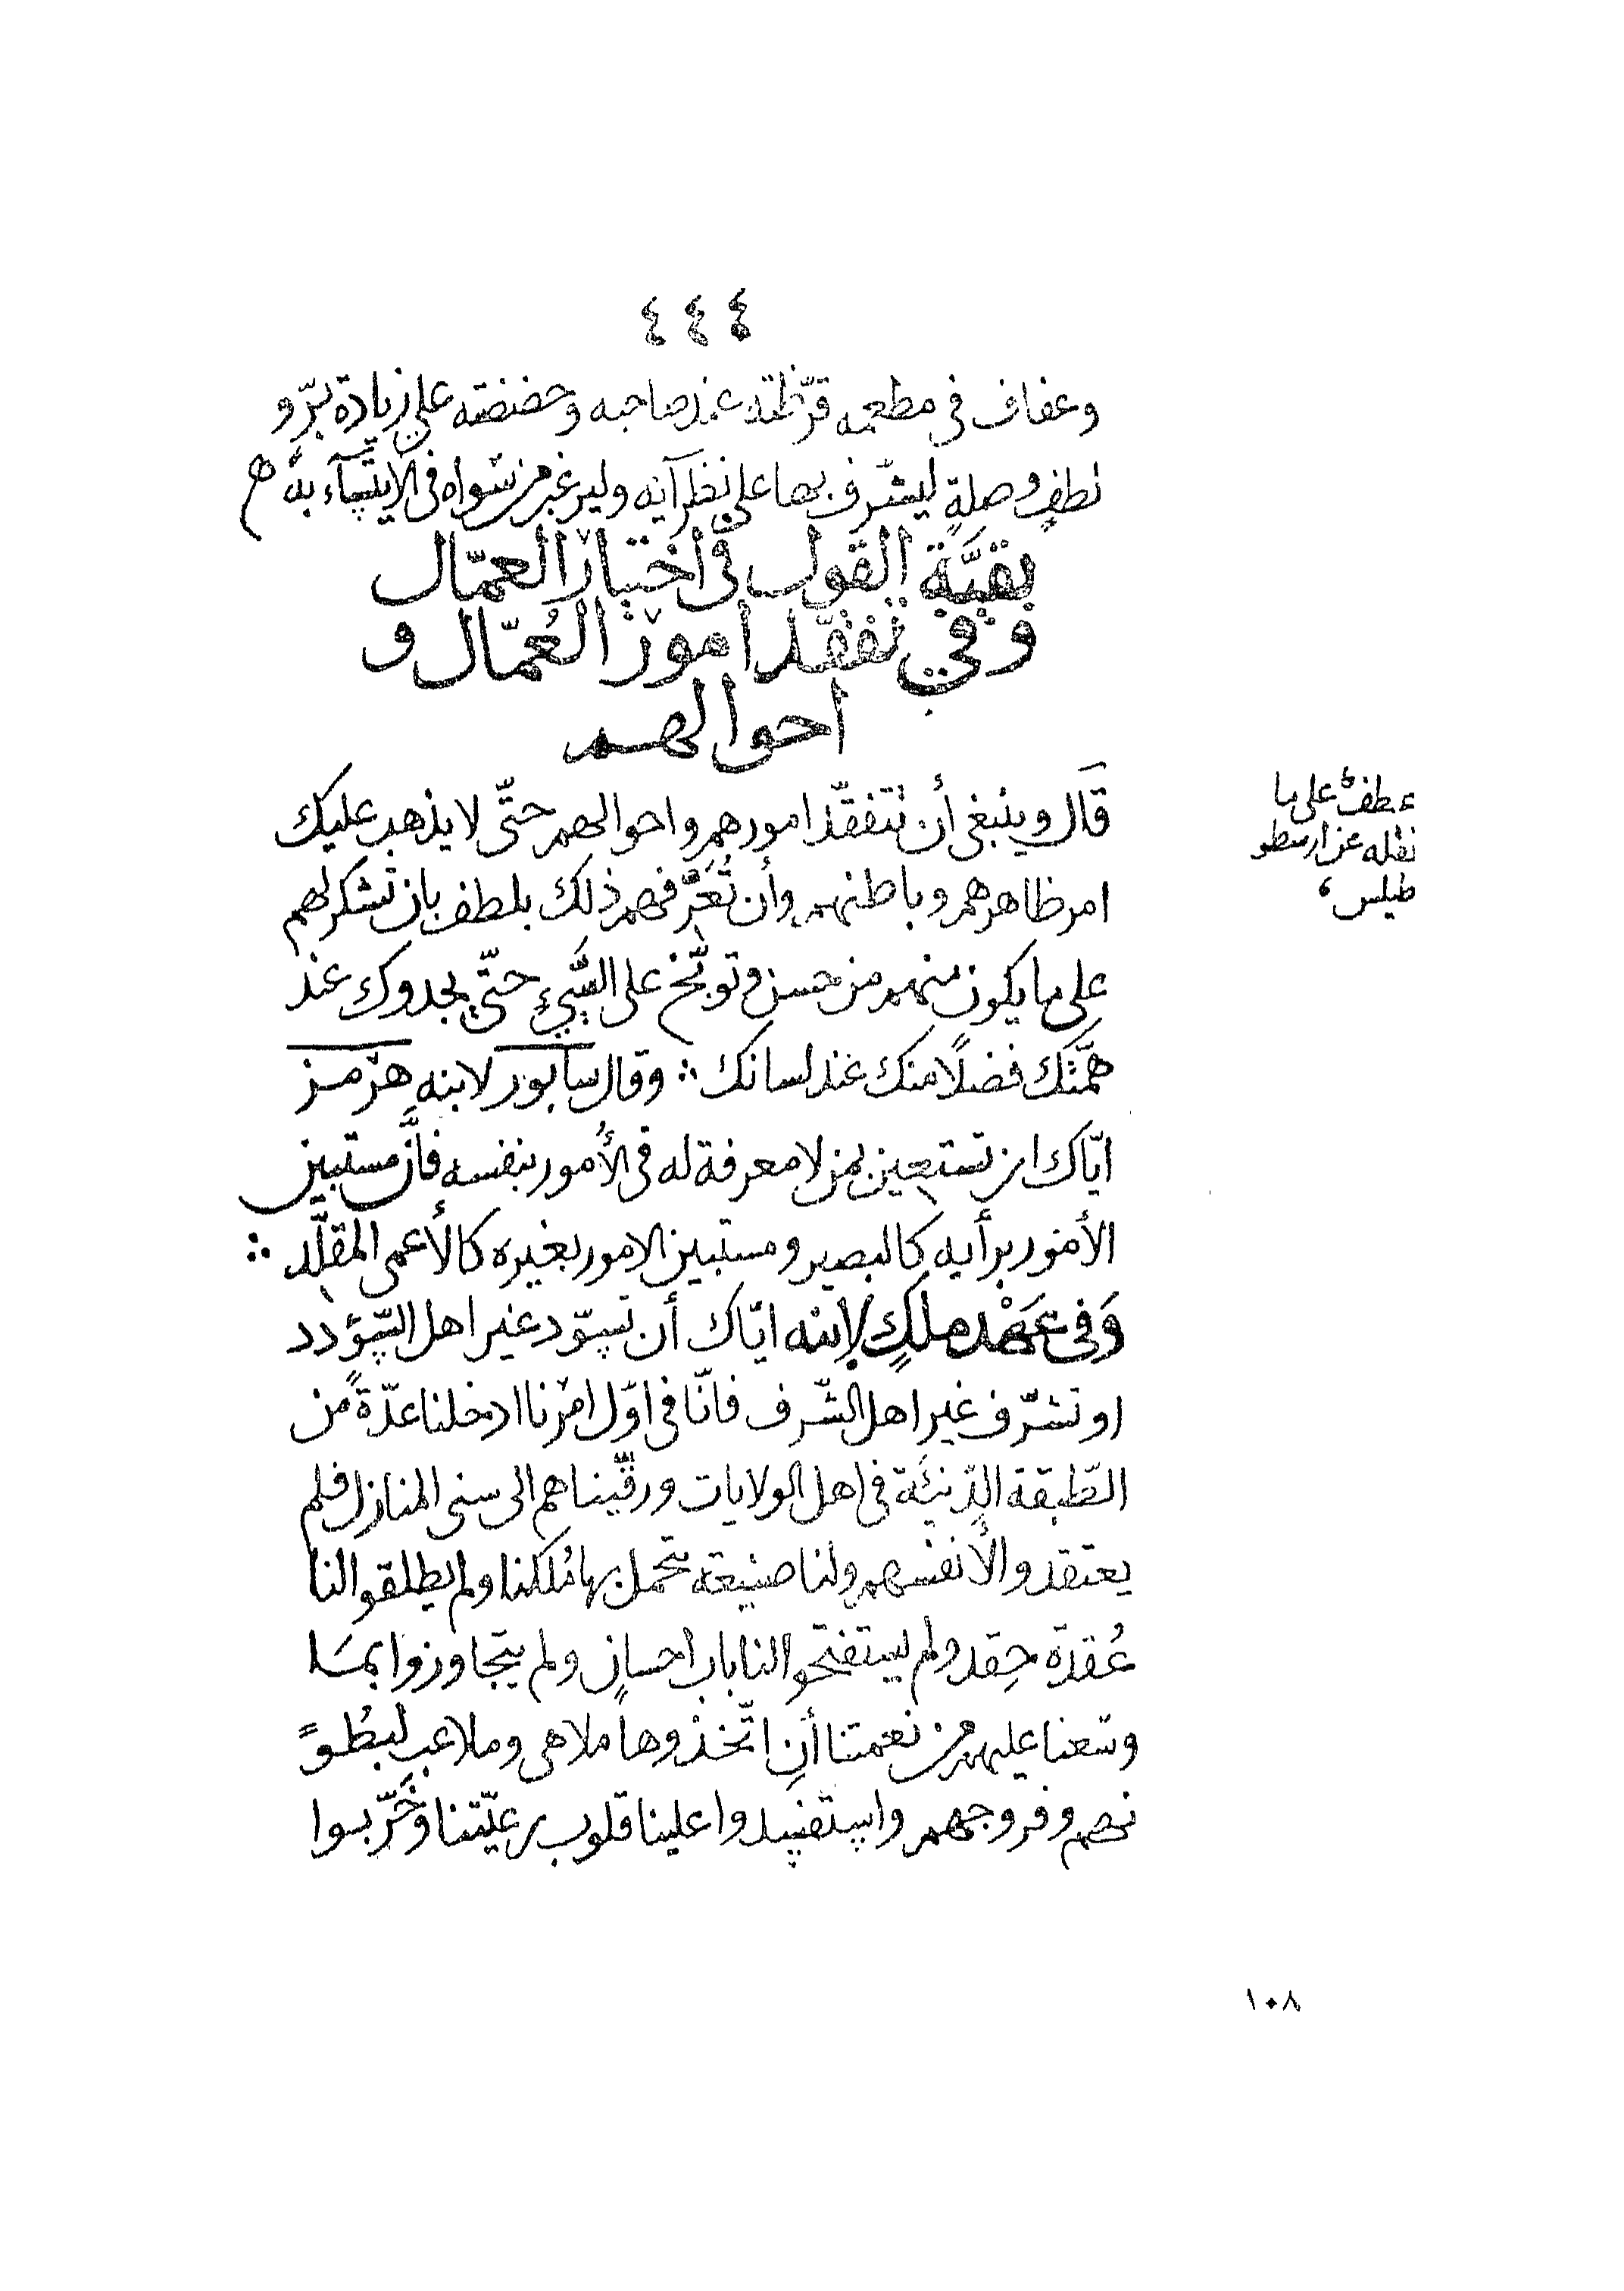 ٤٤٤
وعفاف في مطعمه قرّظته عند صاحبه وحضضته على زيادة برّ و
لطف وصلةٍ ليشرف بها على نظرآئه وليرغب من سواه في الايتسآء به هم
بقيَّة القول في اختيار العمّال
وفي تفقّد امور العُمّال و
احوالهم
قَال وينبغي أن تتفقّد امورهم واحوالهم حتّى لا يذهب عليك
امر ظاهرهم وباطنهم وأن تُعَرّفهم ذلك بلطف بان تشكر لهم
على ما يكون منهم من حسن وتوبّخ على السَّيّئِ حتّى يجدوك عند
همّتك فضلًا منك عند لسانك ∴ وقال سابور لابنه هرمز
ايّاك ان تستعين بمن لا معرفة له في الأُمور بنفسه فاَنَّ مستبين
الأمور برأيه كالبصير ومستبين الامور بغيره كالأعمى المقلَّد ∴
وَفي عَهْد ملكٍ لابنه ايّاك أن تسوّد غير اهل السّؤدد
او تشرّف غير اهل الشّرف فانّا في اوّل امرنا ادخلنا عدّةً من
الطّبقة الدّنيئَة في اهل الولايات ورقّيناهم الى سنى المنازل فلم
يعتقدوا لأنفسهم ولنا صنيعة يتحمل بها مُلكنا ولم يطلقوا لنا
عُقدَة حِقد ولم يستفتحوا لنا باب احسانٍ ولم يتجاوزوا بمَا
وسّعنا عليهم من نعمتنا أنِ اتّخذوها ملاهى وملاعب لبُطو
نهم وفروجهم واستفسدوا علينا قلوب رعيّتنا وخَرّبوا
عطفٌ على ما
نقله عن ارسطو
طيلس
١٠٨